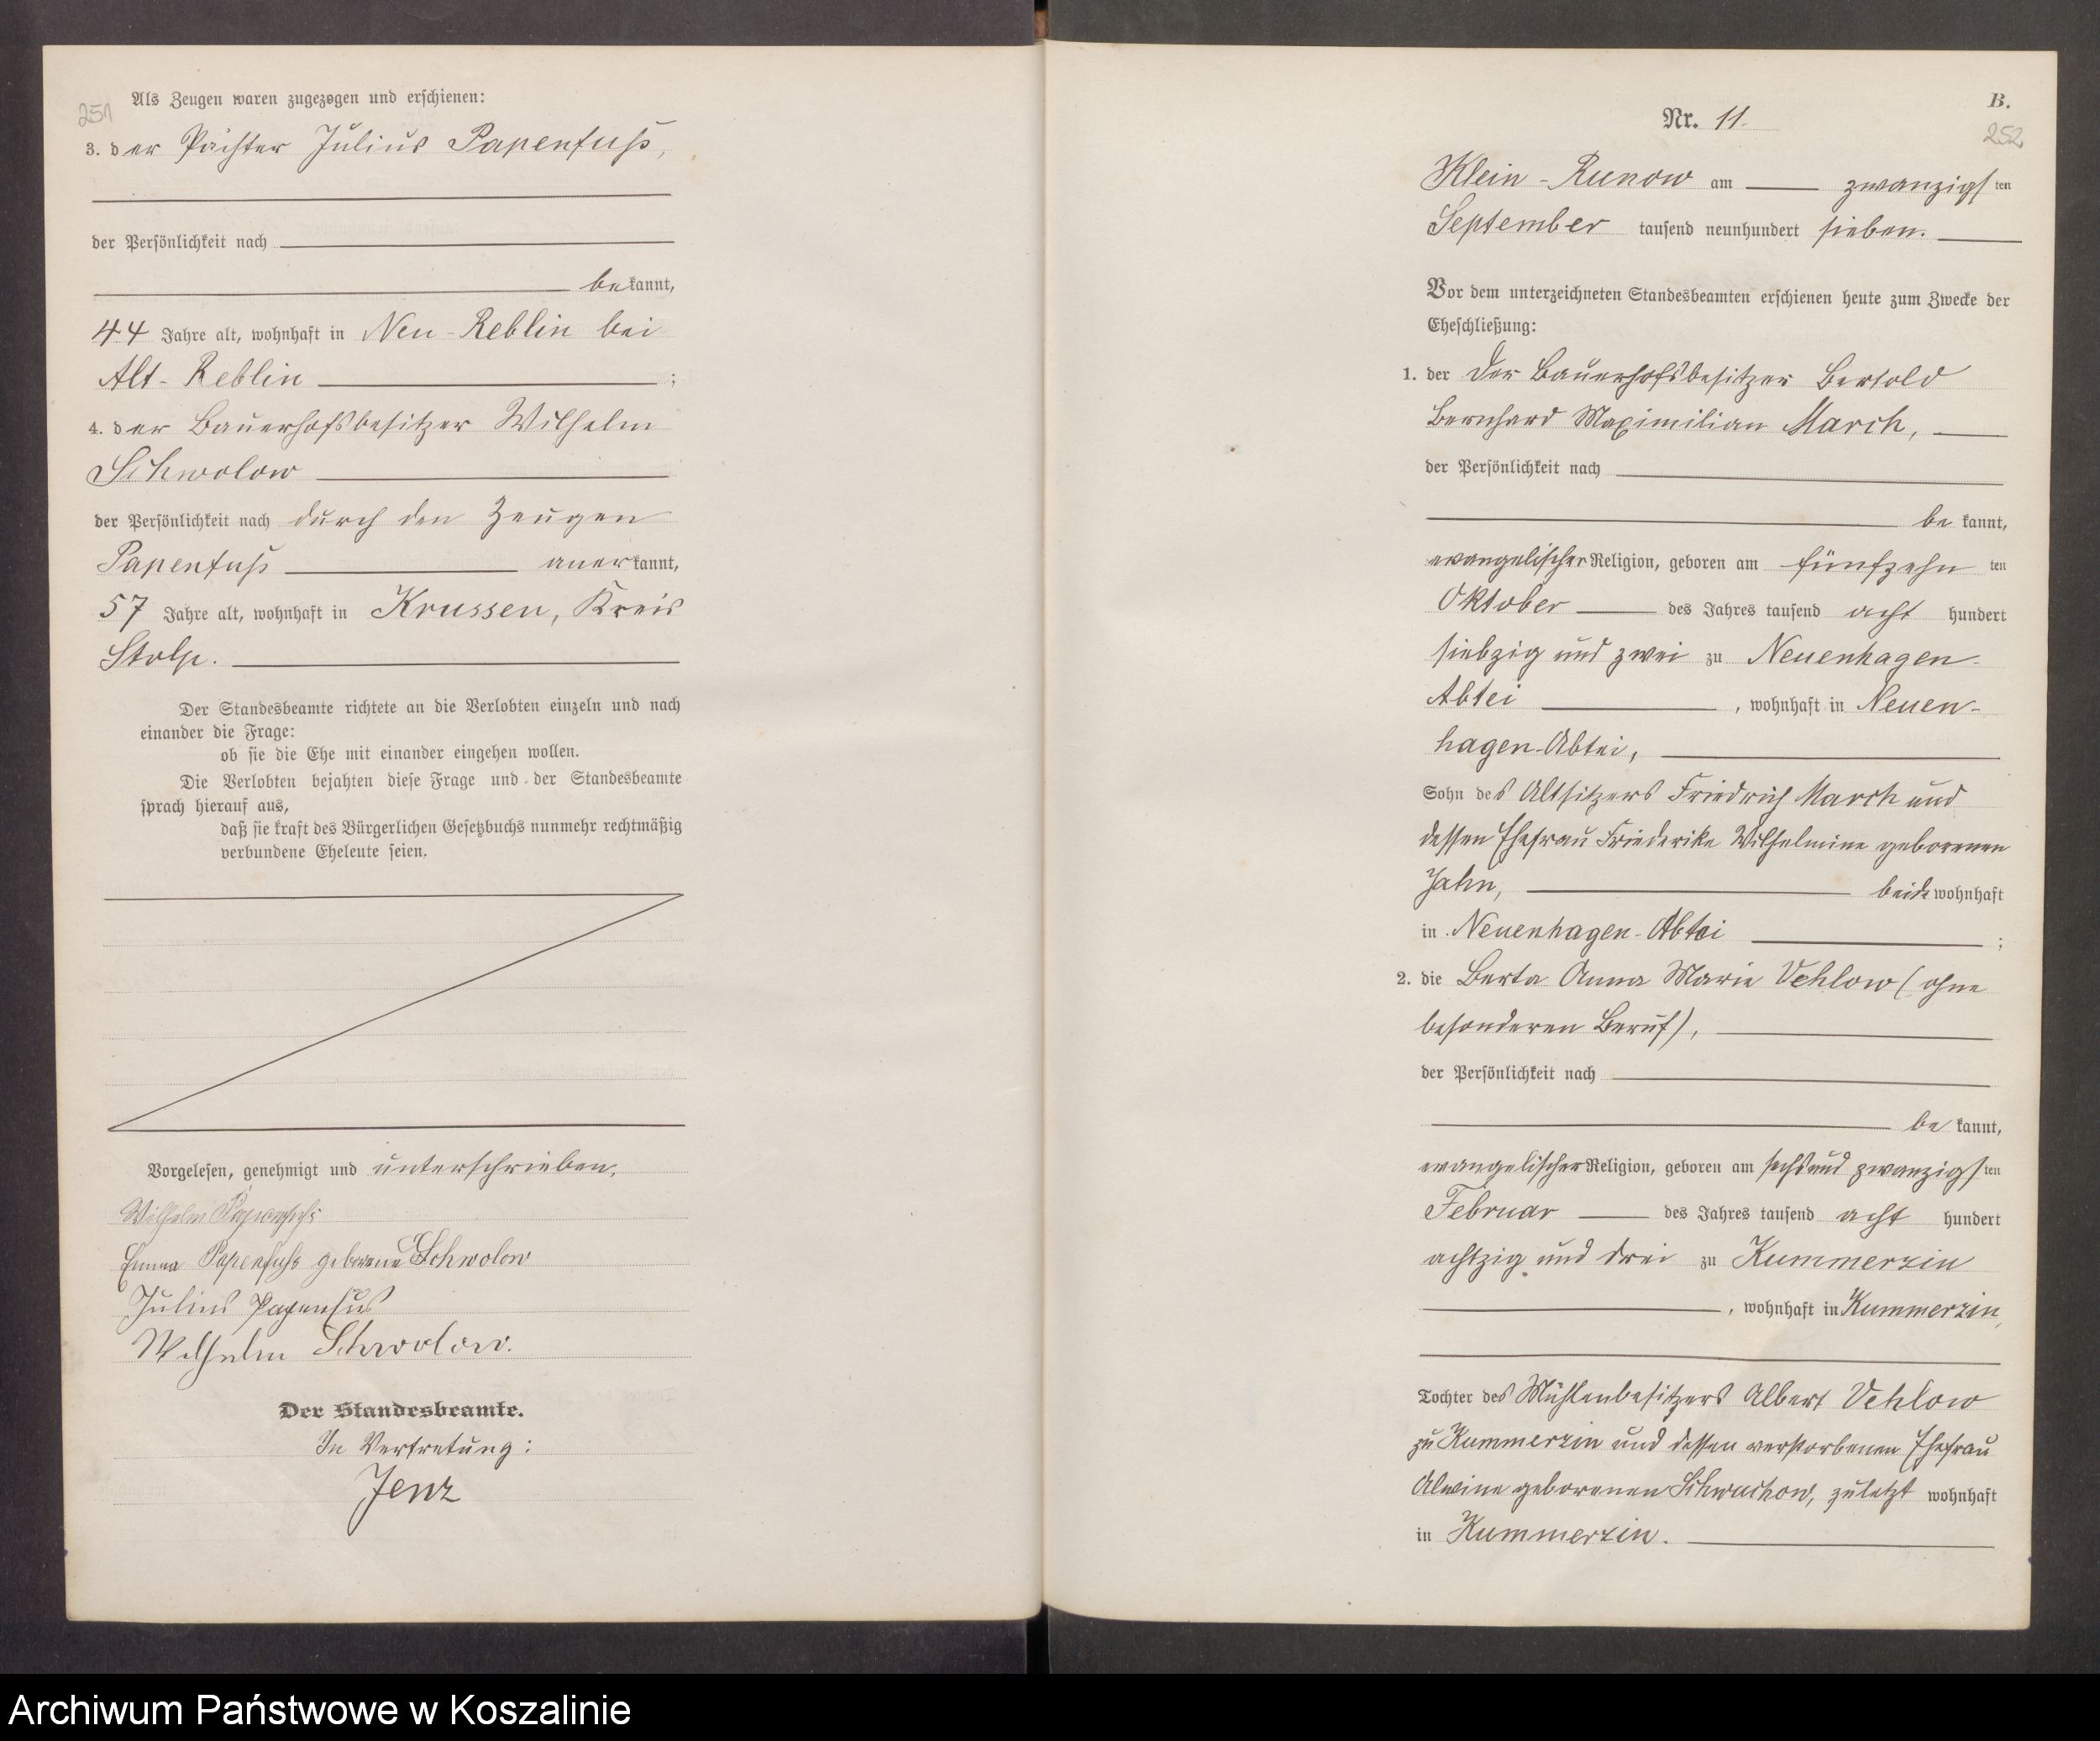 251
Als Zeugen waren zugezogen und erschienen:
3. der Pächter Julius Papenfuß,
der Persönlichkeit nach
bekannt,
44 Jahre alt, wohnhaft in Neu-Reblin bei
Alt-Reblin ;
4. der Bauerhofsbesitzer Wilhelm
Schwolow
der Persönlichkeit nach durch den Zeugen
Papenfuß anerkannt,
57 Jahre alt, wohnhaft in Krussen, Kreis
Stolp.
Der Standesbeamte richtete an die Verlobten einzeln und nach
einander die Frage:
ob sie die Ehe mit einander eingehen wollen.
Die Verlobten bejahten diese Frage und der Standesbeamte
sprach hierauf aus,
daß sie kraft des Bürgerlichen Gesetzbuchs nunmehr rechtmäßig
verbundene Eheleute seien.
Vorgelesen, genehmigt und unterschrieben.
Wilhelm Papenfuß
Emma Papenfuß geborene Schwolow
Julius Papenfus
Wilhelm Schwolow.
Der Standesbeamte.
In Vertretung:
Jenz
B.
Nr. 11.
252
Klein-Runow am zwanzigsten
September tausend neunhundert sieben.
Vor dem unterzeichneten Standesbeamten erschienen heute zum Zwecke der
Eheschließung:
1. der Der Bauerhofsbesitzer Bertold
Bernhard Maximilian March,
der Persönlichkeit nach
be kannt,
evangelischer Religion, geboren am fünfzehn ten
Oktober des Jahres tausend acht hundert
siebzig und zwei zu Neuenhagen-
Abtei , wohnhaft in Neuen-
hagen-Abtei,
Sohn des Altsitzers Friedrich March und
dessen Ehefrau Friederike Wilhelmine geborenen
Jahn, beide wohnhaft
in Neuenhagen-Abtei ;
2. die Berta Anna Marie Vehlow (ohne
besonderen Beruf),
der Persönlichkeit nach
be kannt,
evangelischer Religion, geboren am sechsund zwanzigsten
Februar des Jahres tausend acht hundert
achtzig und drei zu Kummerzin
, wohnhaft in Kummerzin,
Tochter des Mühlenbesitzers Albert Vehlow
zu Kummerzin und dessen verstorbenen Ehefrau
Alwine geborenen Schwuchow, zuletzt wohnhaft
in Kummerzin.
Archiwum Państwowe w Koszalinie